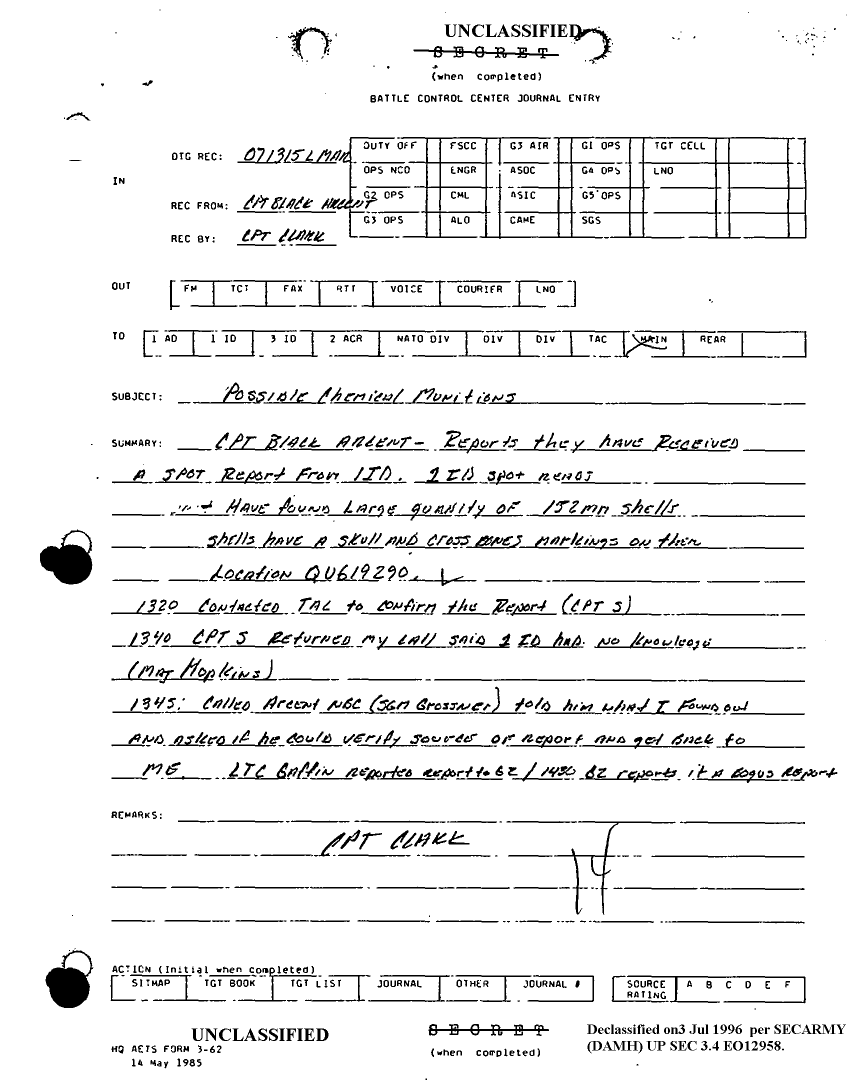 UNCLASSIFIED
SECRET
(when completed)
BATTLE CONTROL CENTER JOURNAL ENTRY
IN
DTG REC: 071315L MAR
REC FROM: CPT BLACK ARCENT
REC BY: CPT CLARK
DUTY OFF FSCC G3 AIR G1 OPS TGT CELL
OPS NCO ENGR ASOC G4 OPS LNO
G2 OPS CML ASIC G5 OPS
G3 OPS ALO CAME SGS
OUT FM TCT FAX RTT VOICE COURIER LNO
TO 1 AD 1 ID 3 ID 2 ACR NATO DIV DIV DIV TAC MAIN REAR
SUBJECT: Possible Chemical Munitions
SUMMARY: CPT Black ARCENT- Reports they have Received
A SPOT Report From 1ID. 1ID spot reads
Have found Large quantity of 152mm shells
shells have a skull and cross bones markings on them
Location QU619290.
1320 Contacted TAC to confirm the Report (CPT S)
1340 CPT S Returned my call said 1 ID had no knowledge
(Maj Hopkins)
1345: Called Arcent NBC (SGM Grossner) told him what I found out
and asked if he could verify source of report and get back to
me. LTC Gaffin reported report to G2 / 1430 G2 reports it a bogus report
REMARKS:
CPT CLARK
14
ACTION (Initial when completed)
SITMAP TGT BOOK TGT LIST JOURNAL OTHER JOURNAL # SOURCE RATING A B C D E F
UNCLASSIFIED
SECRET
(when completed)
Declassified on3 Jul 1996 per SECARMY
(DAMH) UP SEC 3.4 EO12958.
HQ AETS FORM 3-62
14 May 1985